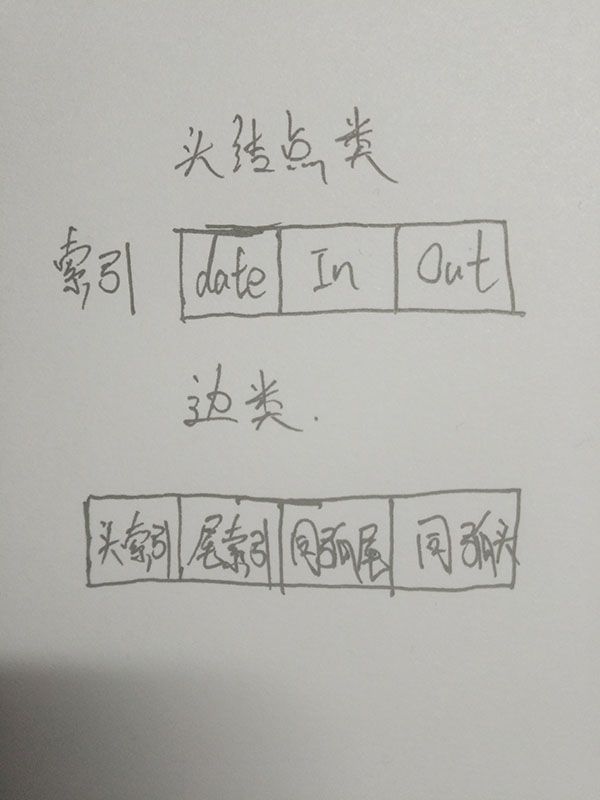 头结点类
索引 date In Out
边类.
头索引 尾索引 同弧尾 同弧头